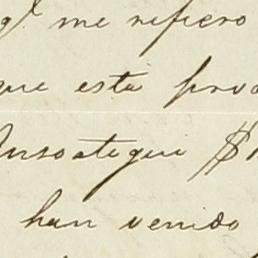 q.e me refiero
que esta prod
Ansoategui $
han venido